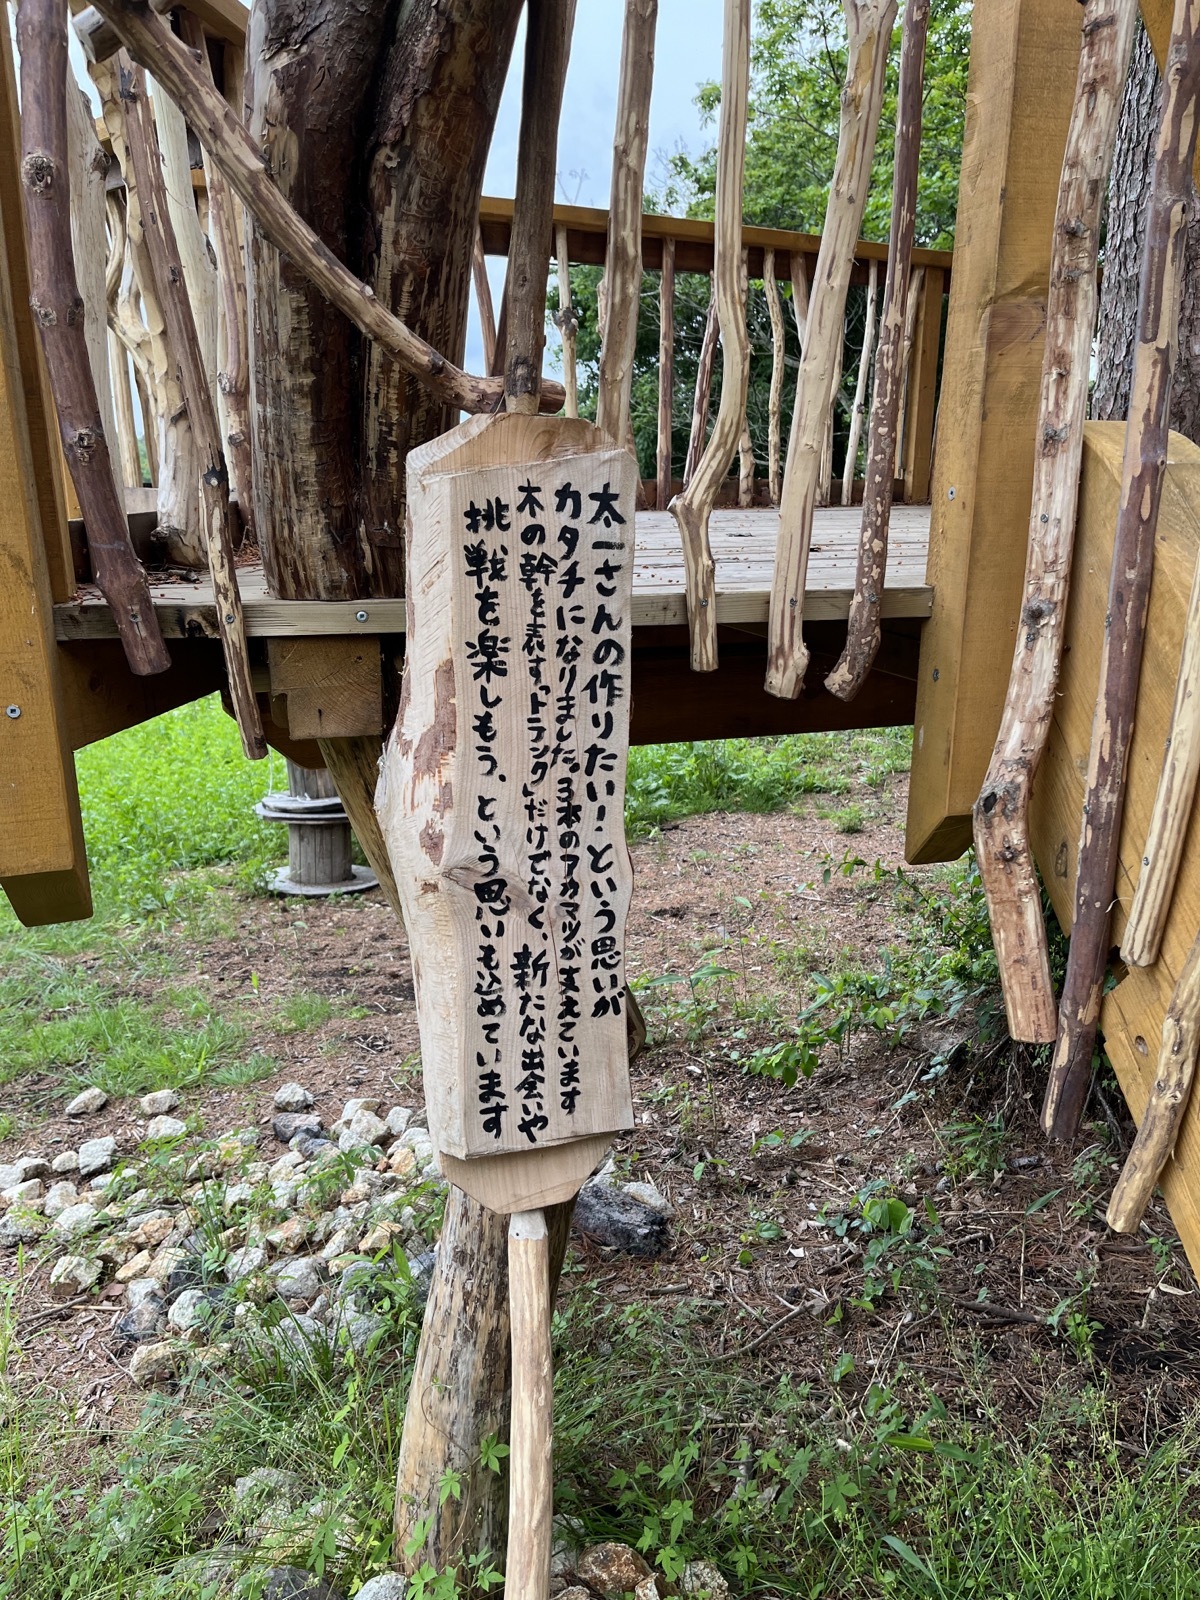 太一さんの作りたい！という思いが
カタチになりました。3本のアカマツが支えています
木の幹を表す「トランク」だけでなく、新たな出会いや
挑戦を楽しもう、という思いも込めています